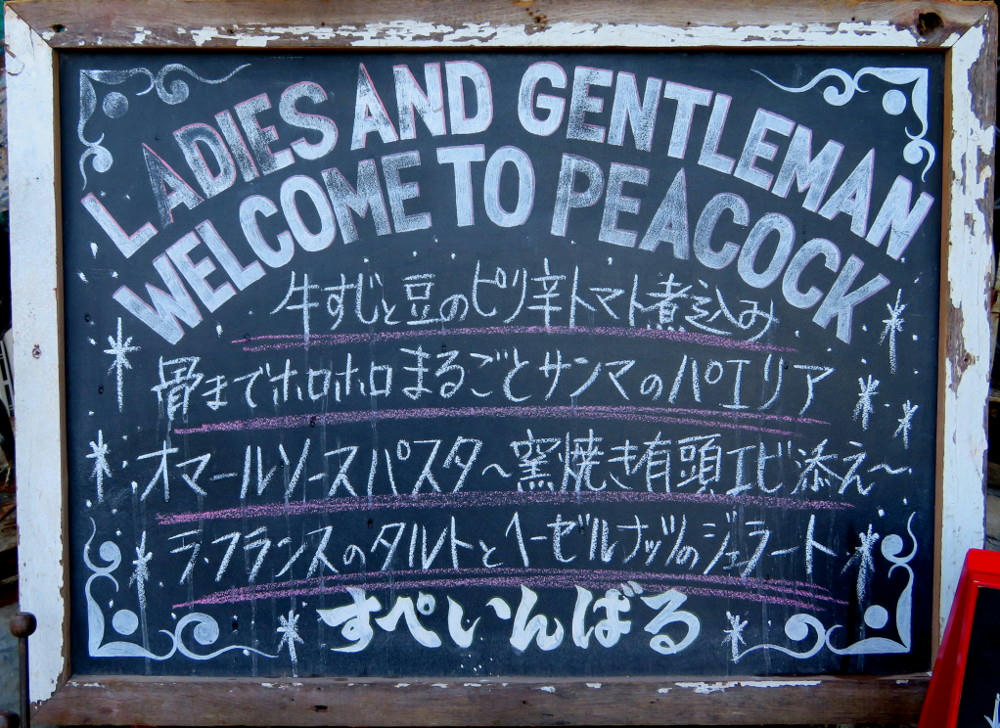 LADIES AND GENTLEMAN
WELCOME TO PEACOCK
牛すじと豆のピリ辛トマト煮込み
骨までホロホロまるごとサンマのパエリア
オマールソースパスタ~窯焼き有頭エビ添え~
ラ・フランスのタルトとヘーゼルナッツのジェラート
すぺいんばる